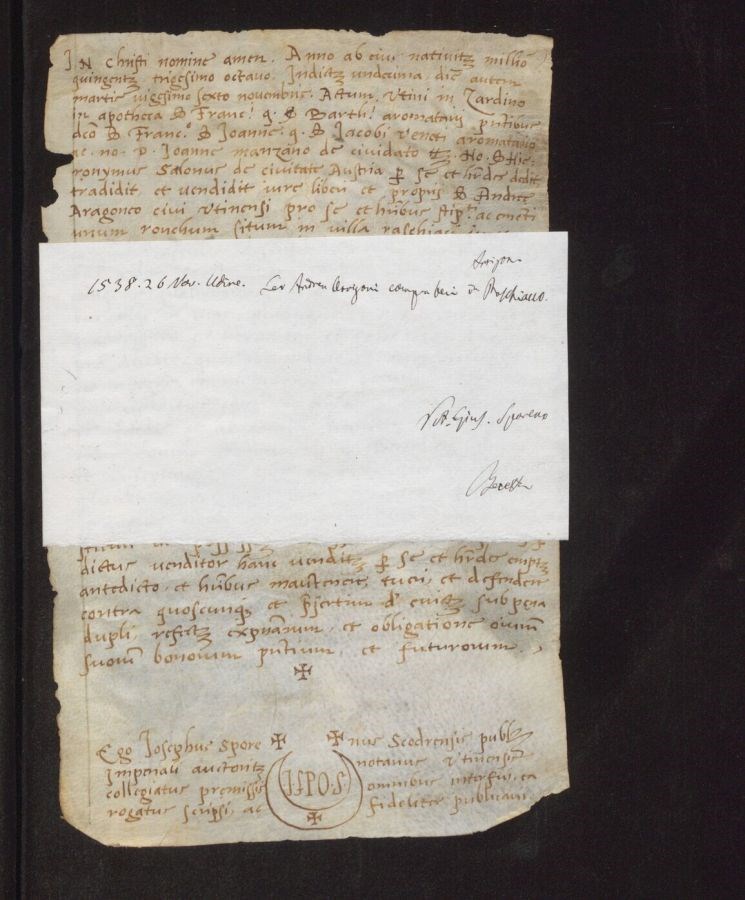 IN Christi nomine amen. Anno ab eius nativitz millmo
quingentz trigesimo octavo. Indictz undecima die autem
martis vigesimo sexto novembris. Actum Utini in Zardino
in apotheca S Franc.i q. S Barthi aromatarij pntibus
dco S Franc.o S Joanne. q. S Jacobi Veneti aromatario
ac. no. D. Joanne manzano de cividato tz. No. S Hie-
ronymus Salonus de civitate Austria p se et hrdes dedit
tradidit et vendidit iure liberi et proprij S Andree
Aragoneo civi Utinensi pro se et hribus stipti ac eneti
unum ronchum situm in villa raschiaci
1538. 26 Nov. Udine. Ser Andrea Arrigoni compra beni in Raschiacco.
Arrigoni
Not. Gius. Sporeno
dictus venditor hanc venditz p se et hrdes emptz
antedicto, et hribus manutenere, tueri, et defendere
contra quoscunq, et expertum de evictz sub pena
dupli, refectz expnarum, et obligatione oium
suorum bonorum pntium, et futurorum.
Ego Josephus Spore ✠ ✠ nus Scodrensis publ
Imperiali auctoritz notarius Utinensis
collegiatus premissis IꟅPOꟅ omnibus interfui, ea
rogatus scripsi, ac fideliter publicavi